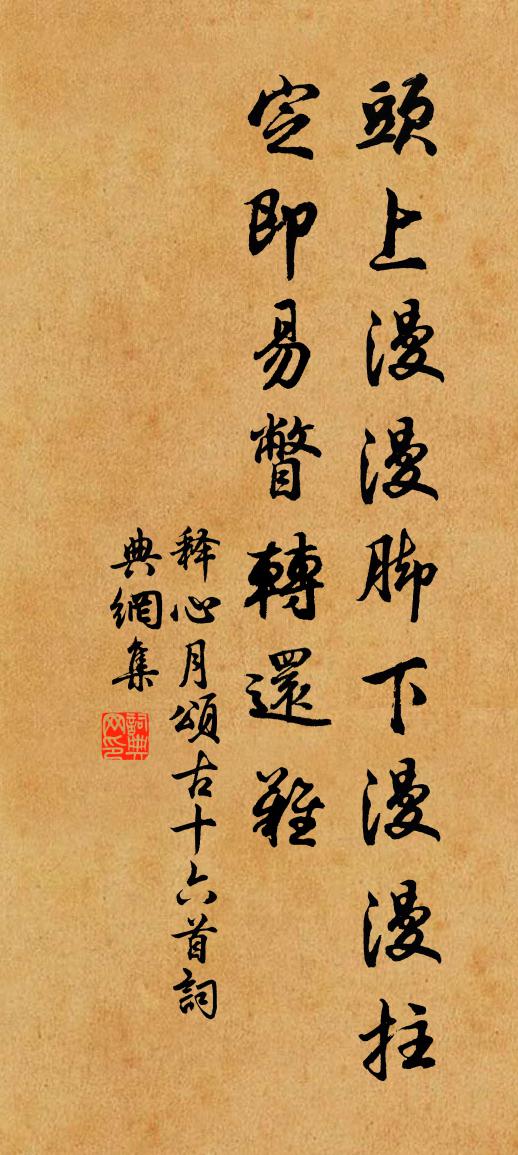 頭上漫漫脚下漫漫拄
定即易瞥轉還難
释心月頌古十六首詞
典網集
詞典網印